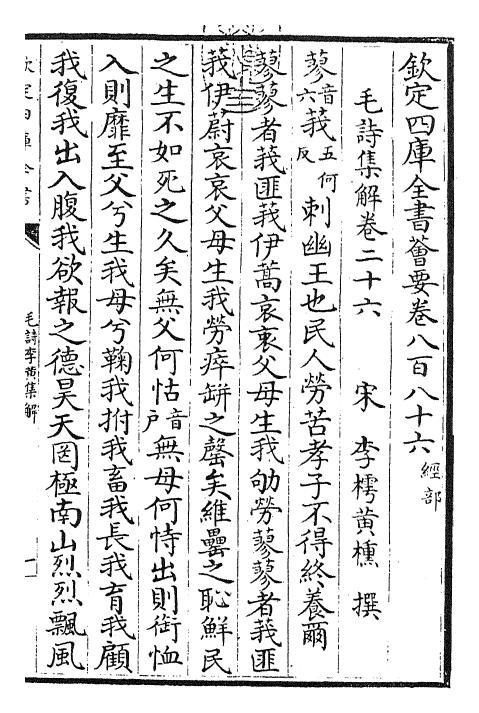 欽定四庫全書薈要卷八百八十六 經部
毛詩集解卷二十六 宋 李樗黃櫄 撰
蓼音六莪五何反刺幽王也民人勞苦孝子不得終養爾
蓼蓼者莪匪莪伊蒿哀哀父母生我劬勞蓼蓼者莪匪
莪伊蔚哀哀父母生我勞瘁缾之罄矣維罍之恥鮮民
之生不如死之久矣無父何怙音户無母何恃出則銜恤
入則靡至父兮生我母兮鞠我拊我畜我長我育我顧
我復我出入腹我欲報之德昊天罔極南山烈烈飄風
欽定四庫全書
毛詩李黃集解
一